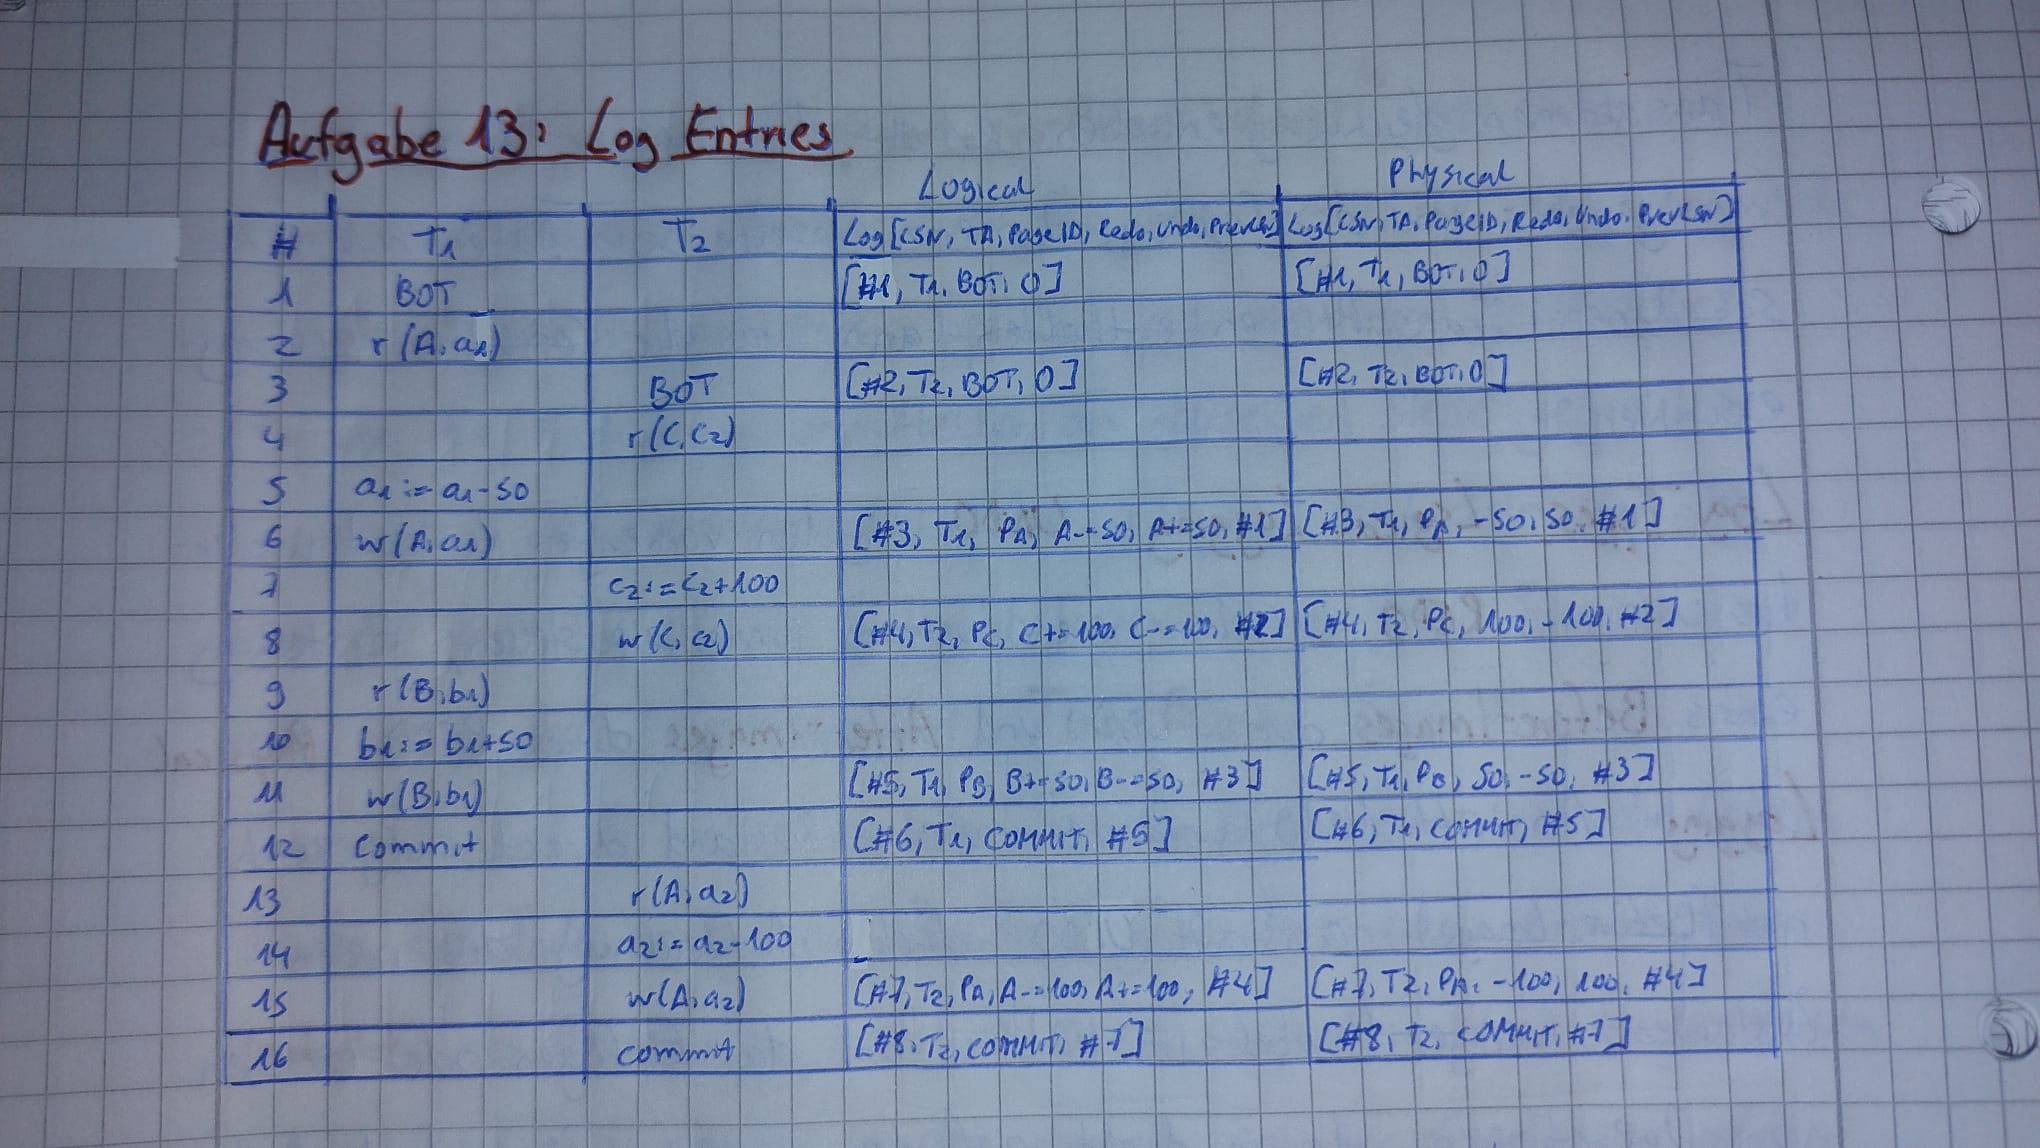 Aufgabe 13: Log Entries
Logical Physical
# T1 T2 Log[LSN, TA, PageID, Redo, Undo, PrevLSN] Log[LSN, TA, PageID, Redo, Undo, PrevLSN]
1 BOT [#1, T1, BOT, 0] [#1, T1, BOT, 0]
2 r(A,a1)
3 BOT [#2, T2, BOT, 0] [#2, T2, BOT, 0]
4 r(C,c2)
5 a1:=a1-50
6 w(A,a1) [#3, T1, PA, A-=50, A+=50, #1] [#3, T1, PA, -50, 50, #1]
7 c2:=c2+100
8 w(C,c2) [#4, T2, PC, C+=100, C-=100, #2] [#4, T2, PC, 100, -100, #2]
9 r(B,b1)
10 b1:=b1+50
11 w(B,b1) [#5, T1, PB, B+=50, B-=50, #3] [#5, T1, PB, 50, -50, #3]
12 commit [#6, T1, COMMIT, #5] [#6, T1, COMMIT, #5]
13 r(A,a2)
14 a2:=a2-100
15 w(A,a2) [#7, T2, PA, A-=100, A+=100, #4] [#7, T2, PA, -100, 100, #4]
16 commit [#8, T2, COMMIT, #7] [#8, T2, COMMIT, #7]